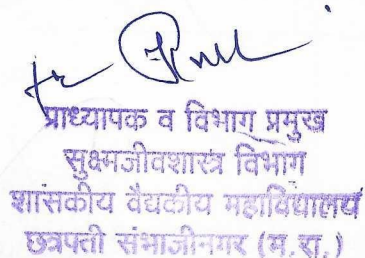 प्राध्यापक व विभाग प्रमुख
सुक्ष्मजीवशास्त्र विभाग
शासकीय वैद्यकीय महाविद्यालय
छत्रपती संभाजीनगर (म.रा.)